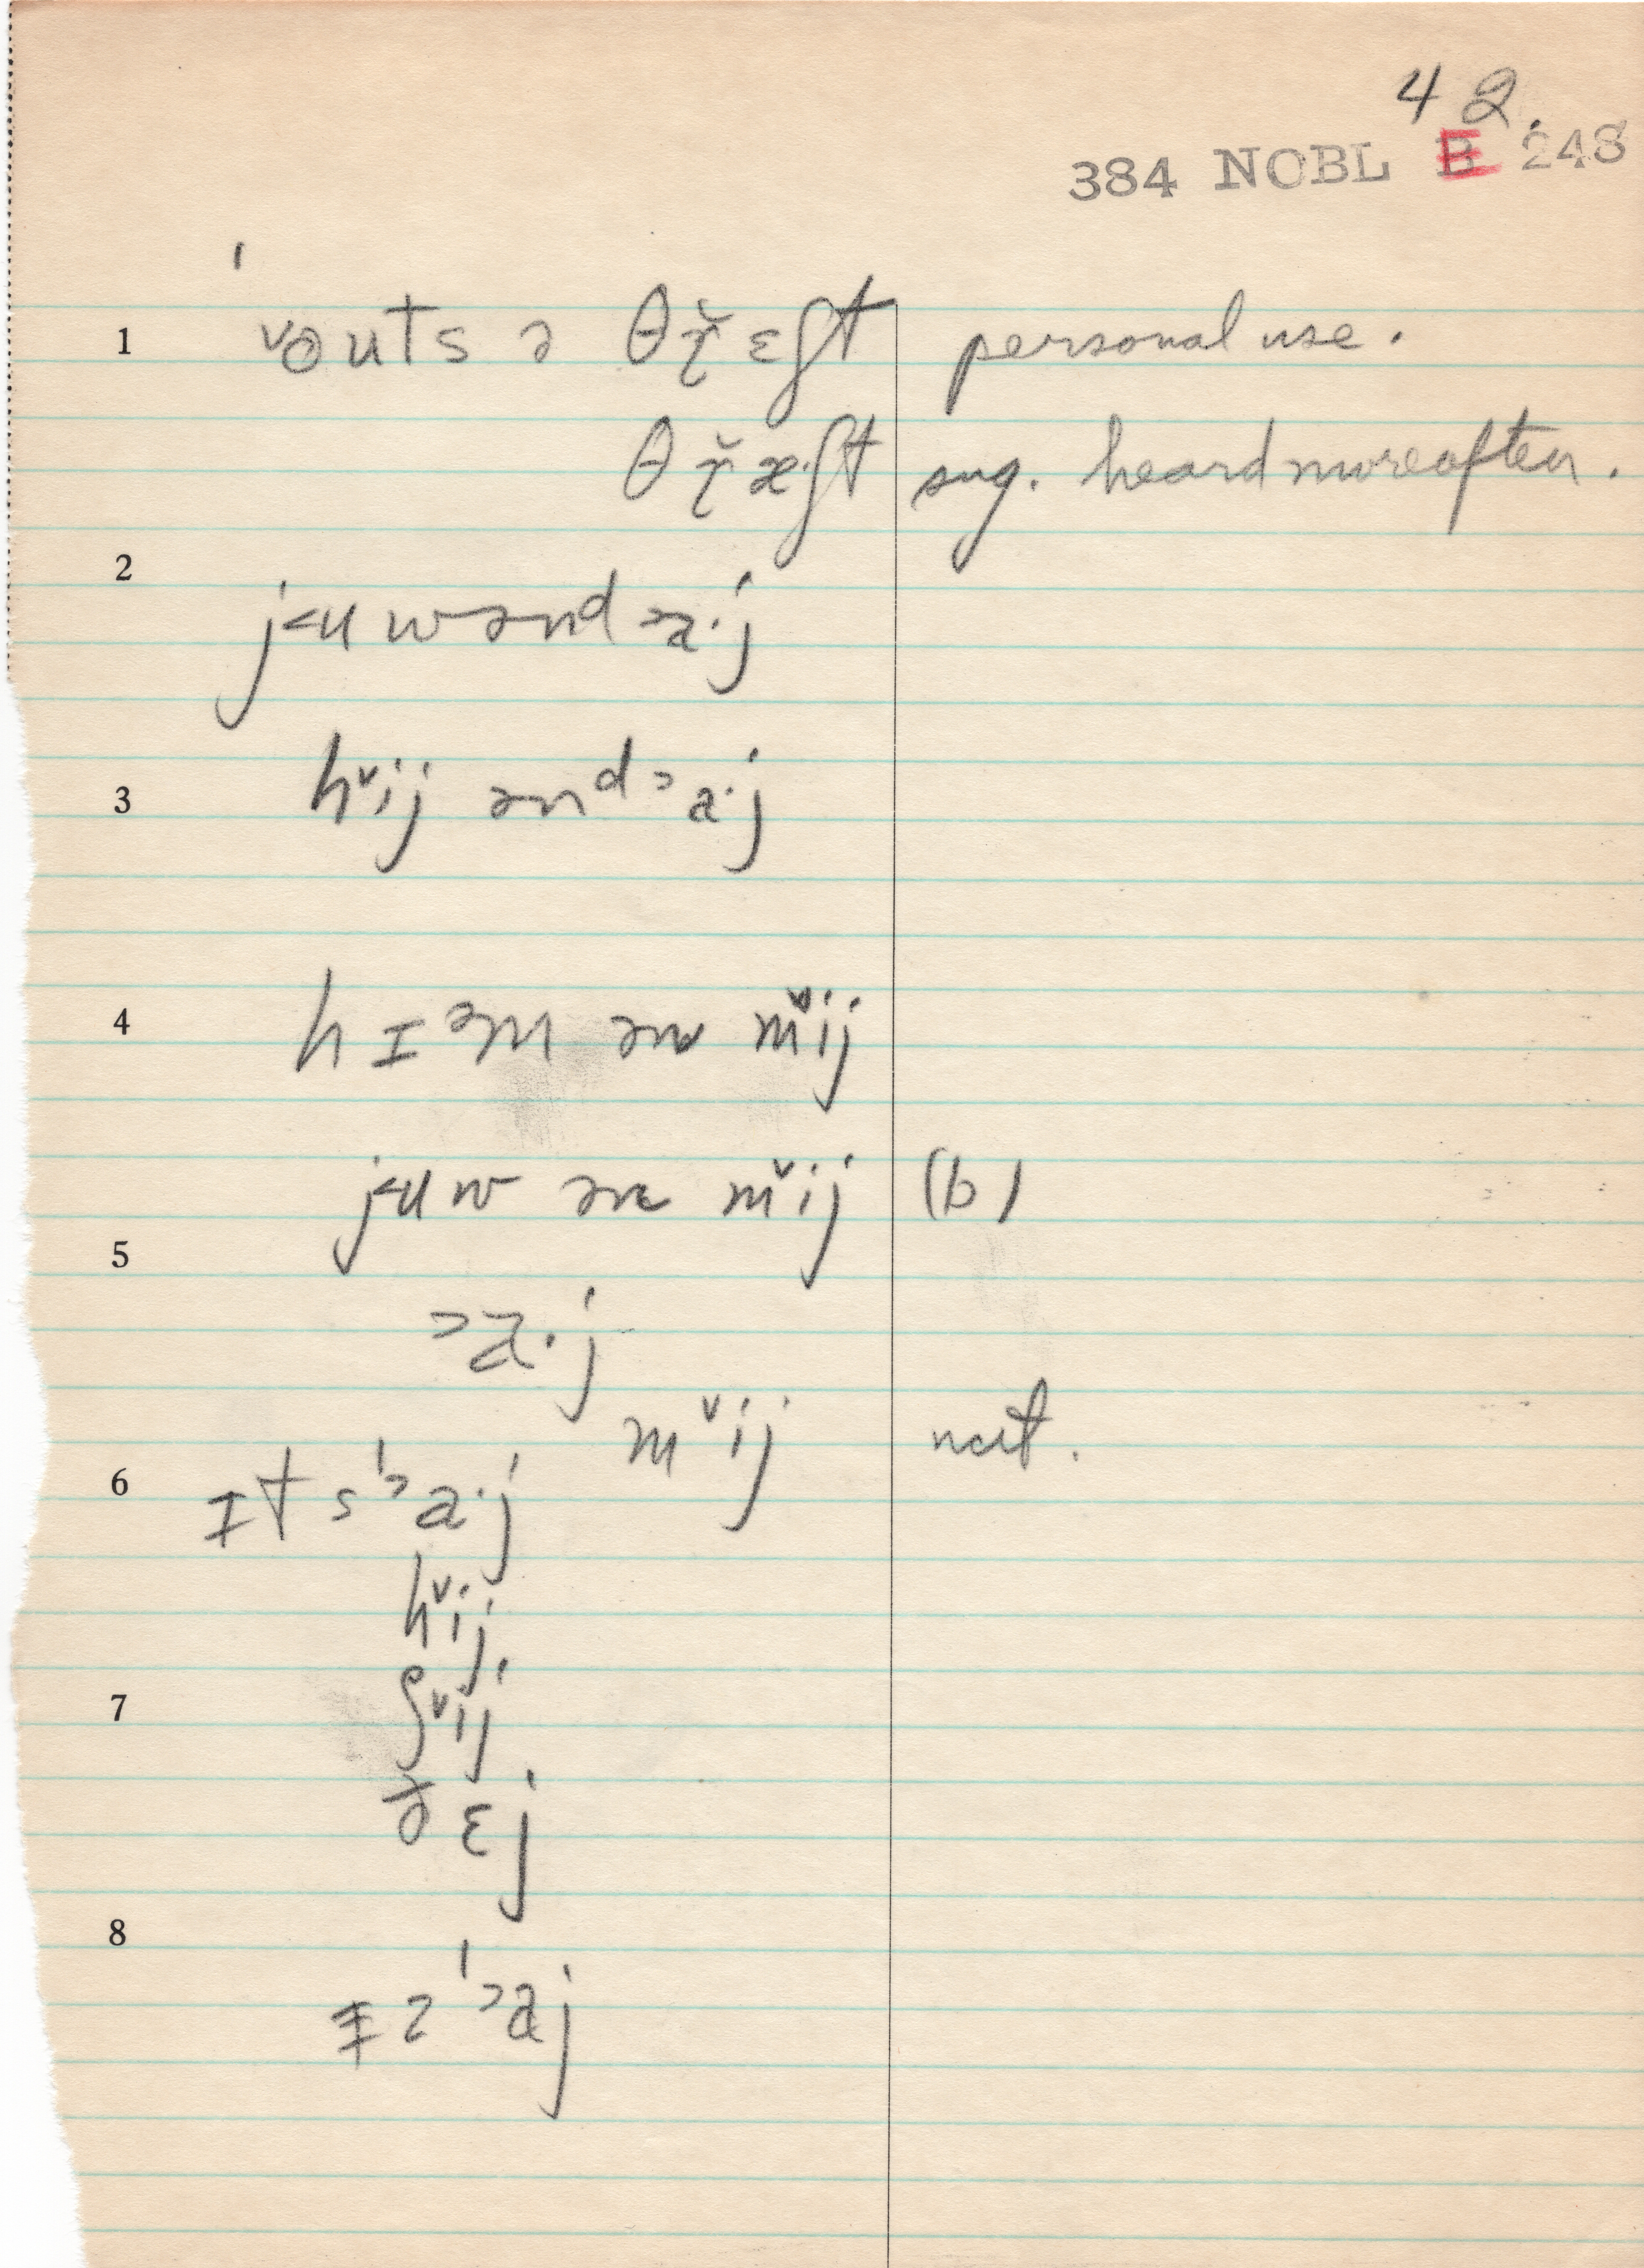 42.
384 NOBL E 248
1 ˈvɵuts ə θɽ̆ɛʃt personal use.
θɽ̆æ·ʃt sug. heard more often.
2
j˂uw ənd ˃a·j
3 h˅ij ənd ˃a·j
4 hɪᵊm ən m˅ij
j˂uw ən m˅ij (b)
5
˃a·j
m˅ij nat.
6 ɪt sˈ˃a·j
h˅ij
7 ʃ˅ij
ðɛj
8
ɪzˈ˃aj